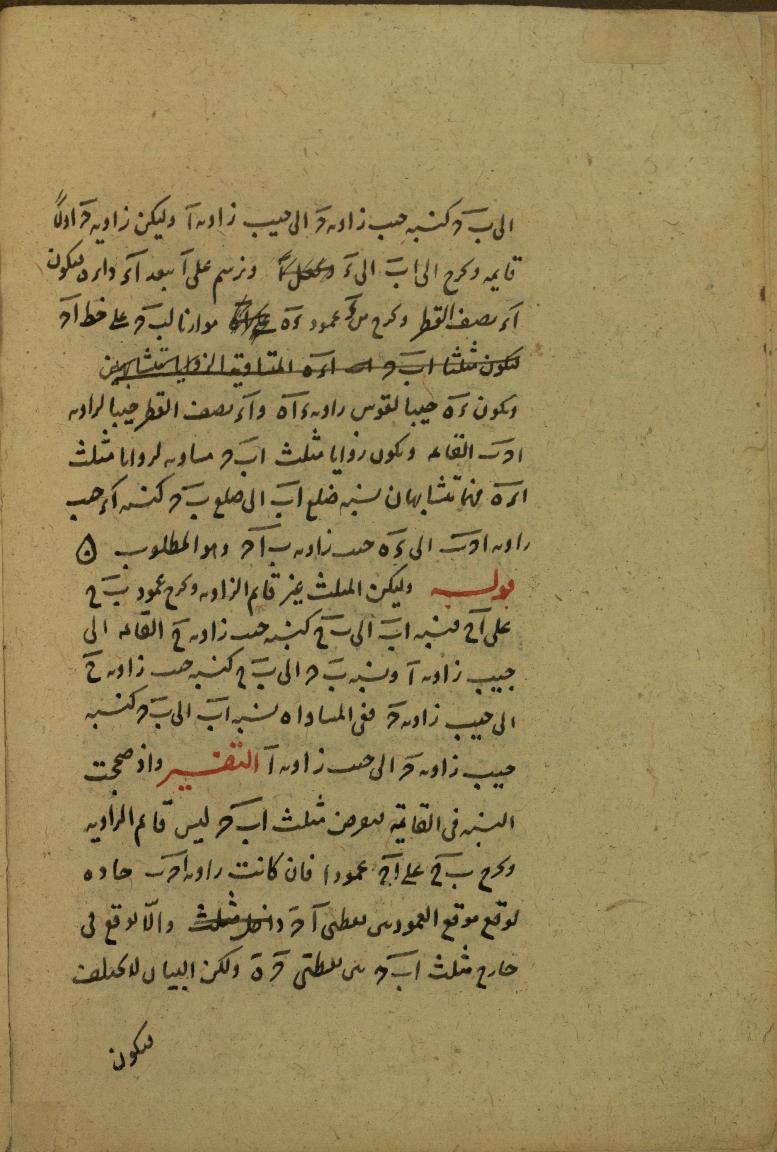 الى ب حـ كنسبه جيب زاويه حـ الى جيب زاويه آ وليكن زاويه حـ اولًا
قايمه ونخرج الى ا ب الى ء ونرسم على آ ببعد آ ء دايره فيكون
آ ء نصف القطر ونخرج من ء عمود ء ه موازيا لب حـ على خط آ حـ
فيكون مثلثا ا ب حـ ا ء ه المتساوية الزوايا متشابهين
ويكون ء ه جيبا لقوس زاويه ء آ ه و آ ء نصف القطر جيبا لزاويه
ا حـ ب القايمه وتكون زوايا مثلث ا ب حـ مساويه لزوايا مثلث
ا ء ه فهما متشابهان نسبه ضلع ا ب الى ضلع ب حـ كنسبه آ ء جيب
زاويه ا حـ ب الى ء ه جيب زاويه ب آ حـ وهو المطلوب ه
قوله وليكن المثلث غير قايم الزاويه ونخرج عمود ب ح
على آ ح فنسبه ا ب الى ب ح كنسبه جيب زاويه ح القايمه الى
جيب زاويه آ ونسبه ب حـ الى ب ح كنسبه جيب زاويه ح
الى جيب زاويه حـ ففى المساواه نسبه ا ب الى ب حـ كنسبه
جيب زاويه حـ الى جيب زاويه آ التفسير واذ صحت
النسبه فى القايمه فليعرض مثلث ا ب حـ ليس قايم الزاويه
ونخرج ب ح على آ حـ عمودا فان كانت زاويه ا حـ ب حاده
لوقع موقع العمود بين نقطتى آ حـ داخل مثلث والّا لوقع فى
خارج مثلث ا ب حـ بين نقطتى حـ ه ولكن البيان لا يختلف
فيكون